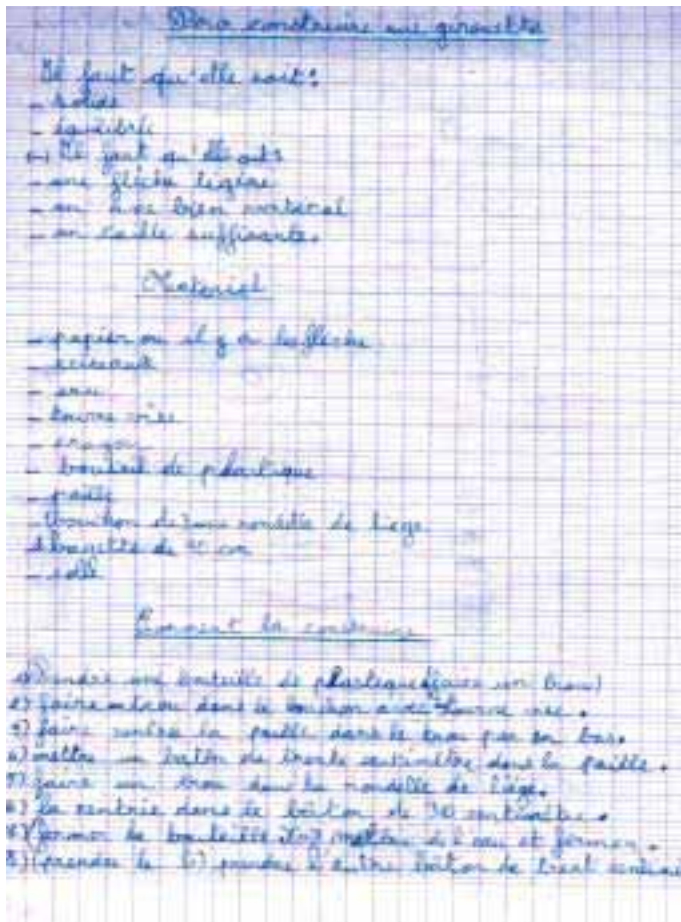 Pour construire une girouette
Il faut qu'elle soit :
- solide
- équilibrée
Il faut qu'elle ait :
- une flèche légère
- un axe bien vertical
- un taille suffisante.
Materiel
- papier ou il y a la flèche
- ciseaux
- eau
- tourne vis
- crayon
- bouteil de plastique
- paille
- bouchon rondelle de liege
baguette de cm
- colle
Comment la construire
prendre une bouteille de plastique (faire un trou)
2) faire un trou dans le bouchon avec tourne vis.
3) faire rentre la paille dans le trou par en bas.
4) mettre un batôn de trente centimètre dans la paille.
5) faire un trou dans la rondelle de liège.
6) la rentrée dans le bâton de 30 centimètre.
fermer la bouteille mettre de l'eau et fermer.
8) (prendre le prendre l'autre bâton de trent